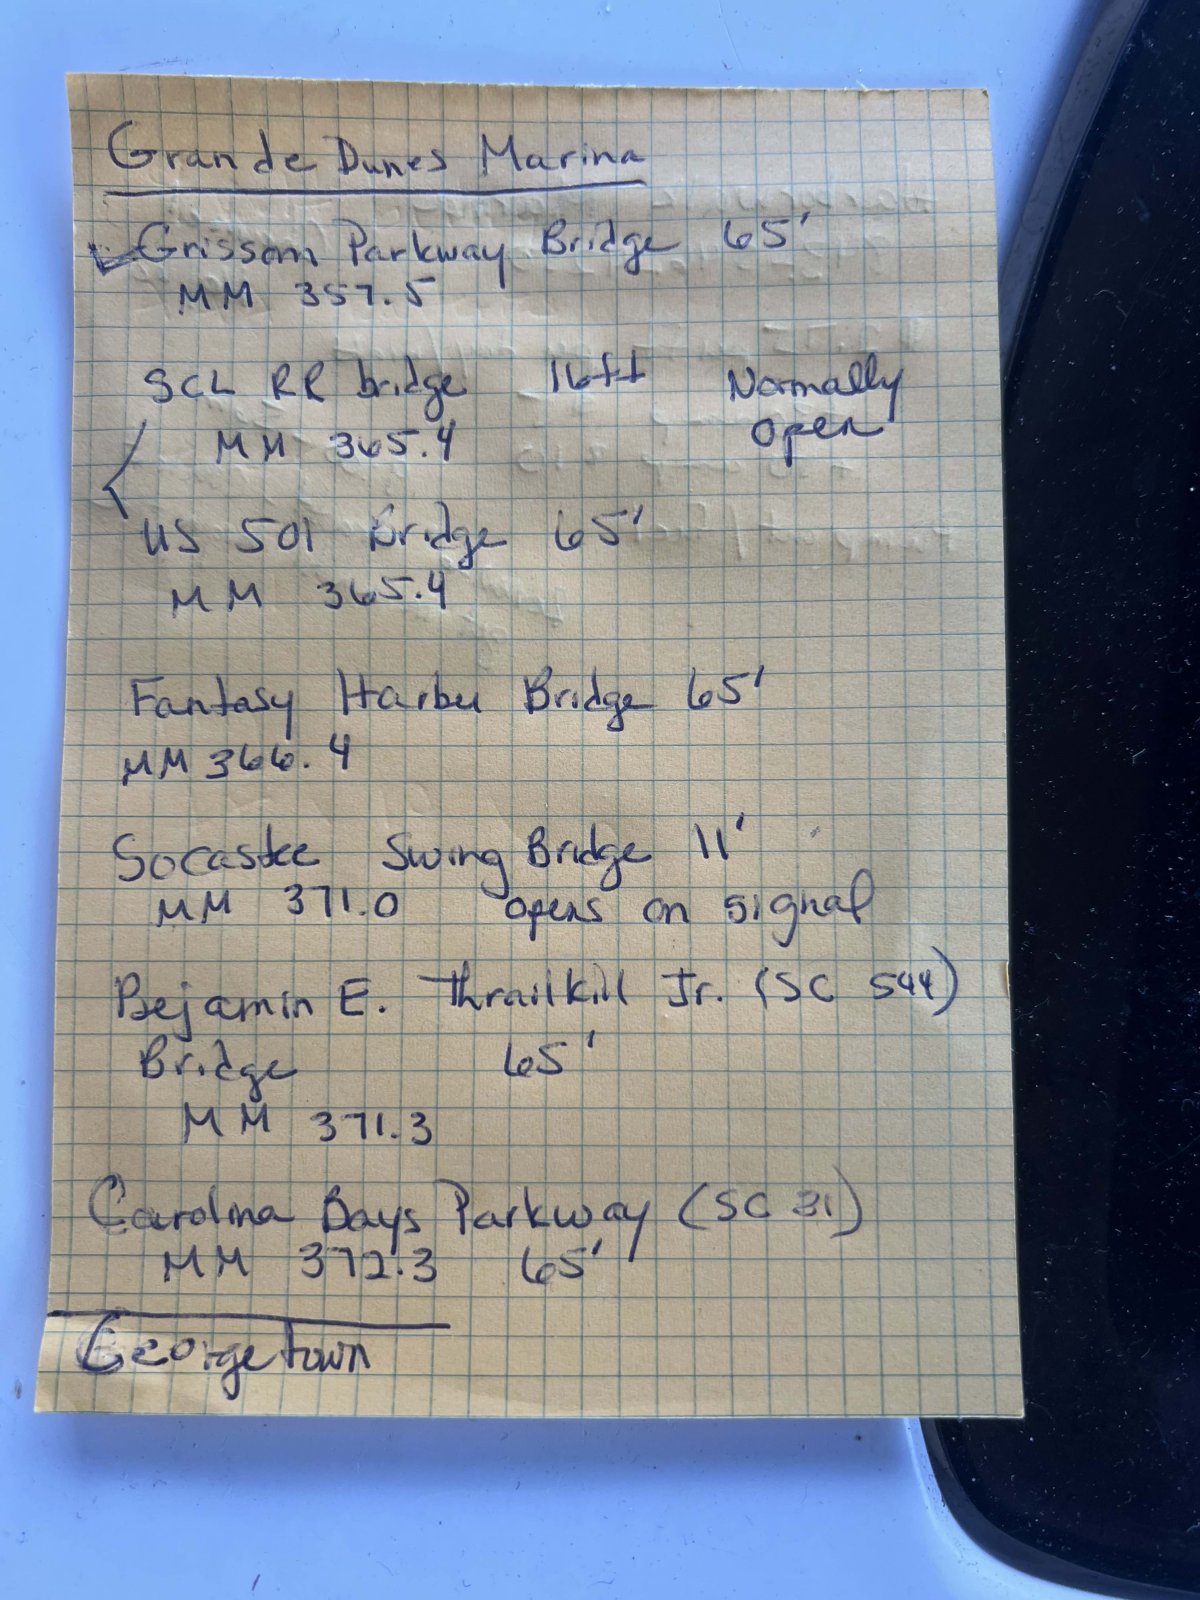 Grande Dunes Marina
Grissom Parkway Bridge 65'
MM 357.5
SCL RR bridge 16ft Normally
open
MM 365.4
US 501 Bridge 65'
MM 365.4
Fantasy Harbu Bridge 65'
MM 366.4
Socastee Swing Bridge 11'
MM 371.0 opens on signal
Bejamin E. Thrailkill Jr. (SC 544)
Bridge 65'
MM 371.3
Carolina Bays Parkway (SC 31)
MM 372.3 65'
Georgetown